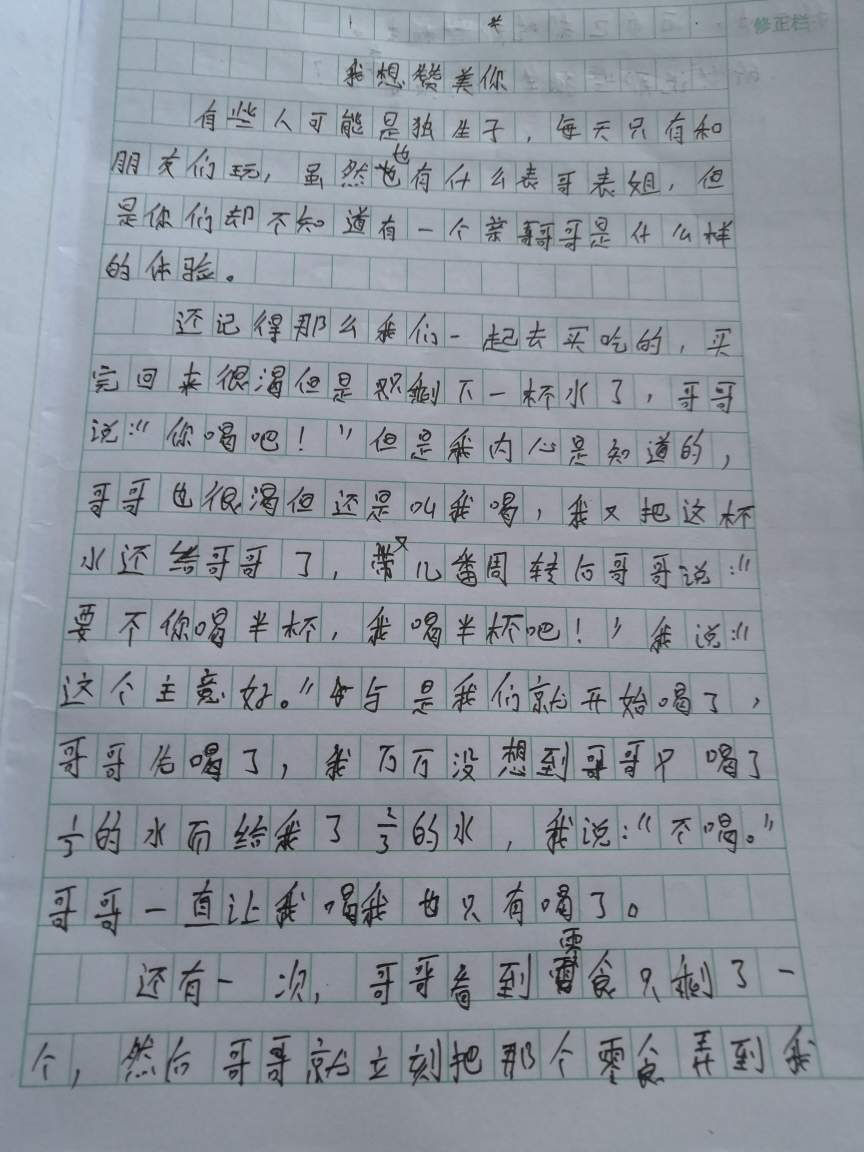 修正栏
我想赞美你
有些人可能是独生子，每天只有和
朋友们玩，虽然也有什么表哥表姐，但
是你们却不知道有一个亲哥哥是什么样
的体验。
还记得那么我们一起去买吃的，买
完回来很渴但是只剩下一杯水了，哥哥
说：“你喝吧！”但是我内心是知道的，
哥哥也很渴但还是叫我喝，我又把这杯
水还给哥哥了，又几番周转后哥哥说：“
要不你喝半杯，我喝半杯吧！”我说：“
这个主意好。”与是我们就开始喝了，
哥哥先喝了，我万万没想到哥哥只喝了
1/3的水而给我了2/3的水，我说：“不喝。”
哥哥一直让我喝我也只有喝了。
还有一次，哥哥看到零食只剩了一
个，然后哥哥就立刻把那个零食弄到我